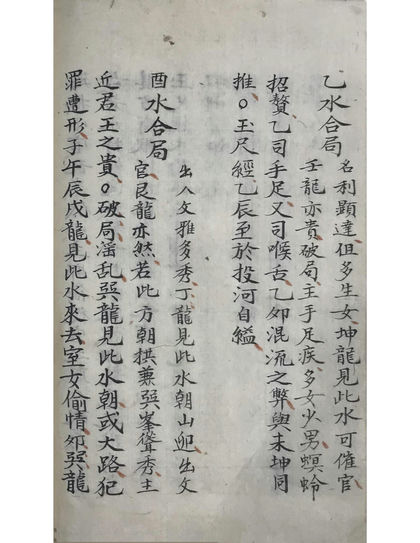 乙水合局
名利顯達但多生女坤龍見此水可催官
壬龍亦貴破局主手足疾多女少男螟蛉
招贅乙司手足又司喉舌乙卯混流之弊與未坤同
推○玉尺經乙辰至於投河自縊
酉水合局
出入文雅多秀丁龍見此水朝山迎出文
官艮龍亦然若此方朝拱兼巽峯聳秀主
近君王之貴○破局淫乱巽龍見此水朝或大路犯
罪遭形子午辰戌龍見此水來去室女偷情卯巽龍